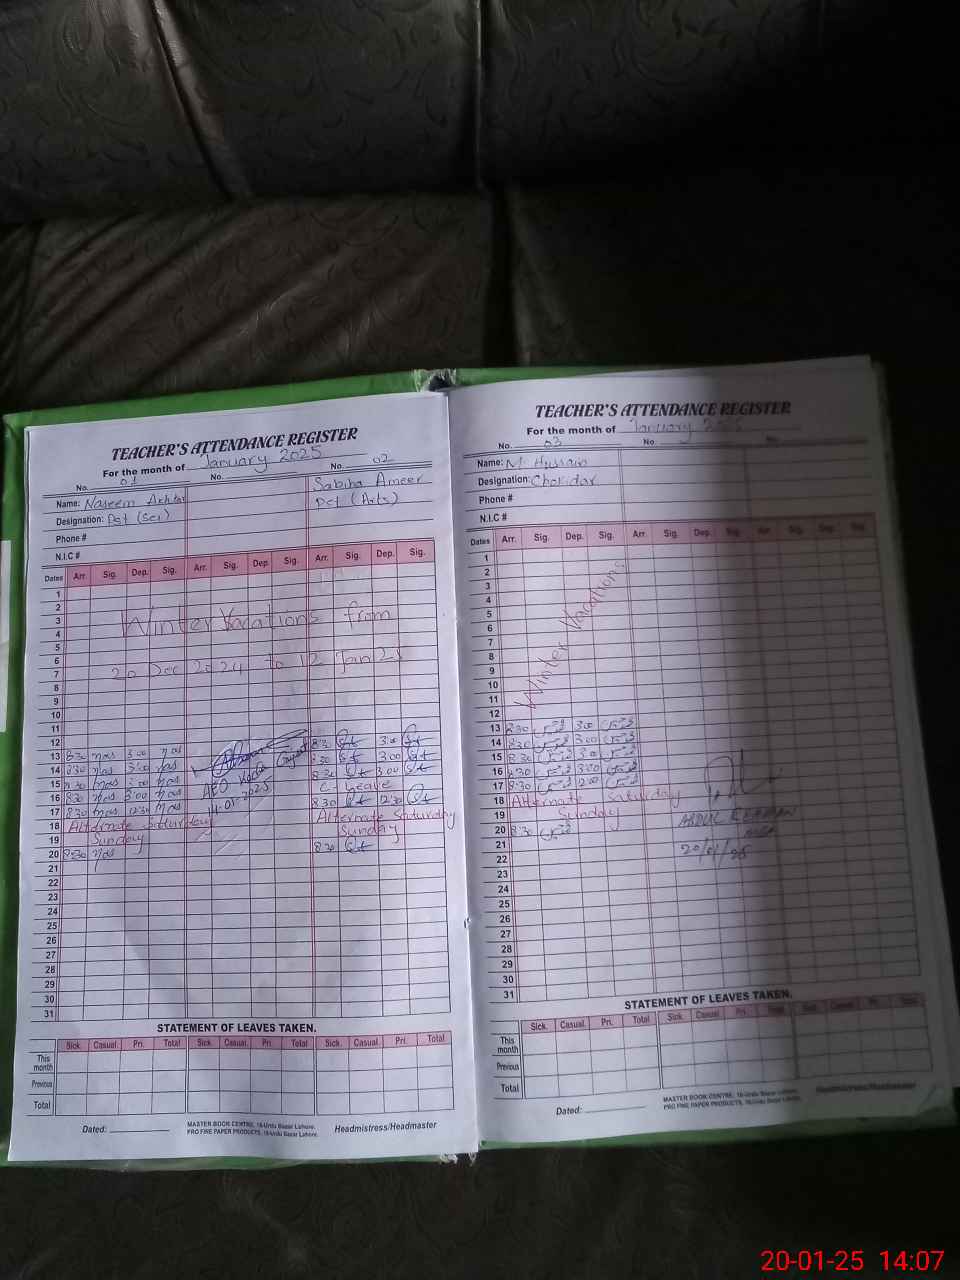 TEACHER'S ATTENDANCE REGISTER
For the month of January 2025
No. 01 No. No. 02
Name: Naseem Akhtar Sabiha Ameer
Designation: Pst (Sci) Pst (Arts)
Phone #
N.I.C #
Dates Arr. Sig. Dep. Sig. Arr. Sig. Dep. Sig. Arr. Sig. Dep. Sig.
1
2
3 Winter Vacations from
4
5
6
7 20 Dec 2024 to 12 Jan 25
8
9
10
11
12
13 8:30 nas 3:00 nas 8:30 3:00
14 8:30 nas 3:00 nas 8:30 3:00
15 8:30 nas 3:00 nas 8:30 3:00
16 8:30 nas 3:00 nas C-Leave
17 8:30 nas 12:30 nas 8:30 12:30
AEO
14-01-2025
18 Alternate Saturday Alternate Saturday
19 Sunday Sunday
20 8:30 nas 8:30
21
22
23
24
25
26
27
28
29
30
31
STATEMENT OF LEAVES TAKEN.
Sick. Casual. Pri. Total Sick. Casual. Pri. Total Sick. Casual. Pri. Total
This month
Previous
Total
Dated:
MASTER BOOK CENTRE, 16-Urdu Bazar Lahore.
PRO FINE PAPER PRODUCTS, 16-Urdu Bazar Lahore.
Headmistress/Headmaster
TEACHER'S ATTENDANCE REGISTER
For the month of January 2025
No. 03 No. No.
Name: M. Hussain
Designation: Chokidar
Phone #
N.I.C #
Dates Arr. Sig. Dep. Sig. Arr. Sig. Dep. Sig. Arr. Sig. Dep. Sig.
1
2
3
4
5
6
7
8
9
10
11
12
Winter Vacations
13 8:30 3:00
14 8:30 3:00
15 8:30 3:00
16 8:30 3:00
17 8:30 12:00
18 Alternate Saturday
19 Sunday
20 8:30
ABDUL REHMAN
20/01/25
21
22
23
24
25
26
27
28
29
30
31
STATEMENT OF LEAVES TAKEN.
Sick. Casual. Pri. Total Sick. Casual. Pri. Total Sick. Casual. Pri. Total
This month
Previous
Total
Dated:
MASTER BOOK CENTRE, 16-Urdu Bazar Lahore.
PRO FINE PAPER PRODUCTS, 16-Urdu Bazar Lahore.
Headmistress/Headmaster
20-01-25 14:07